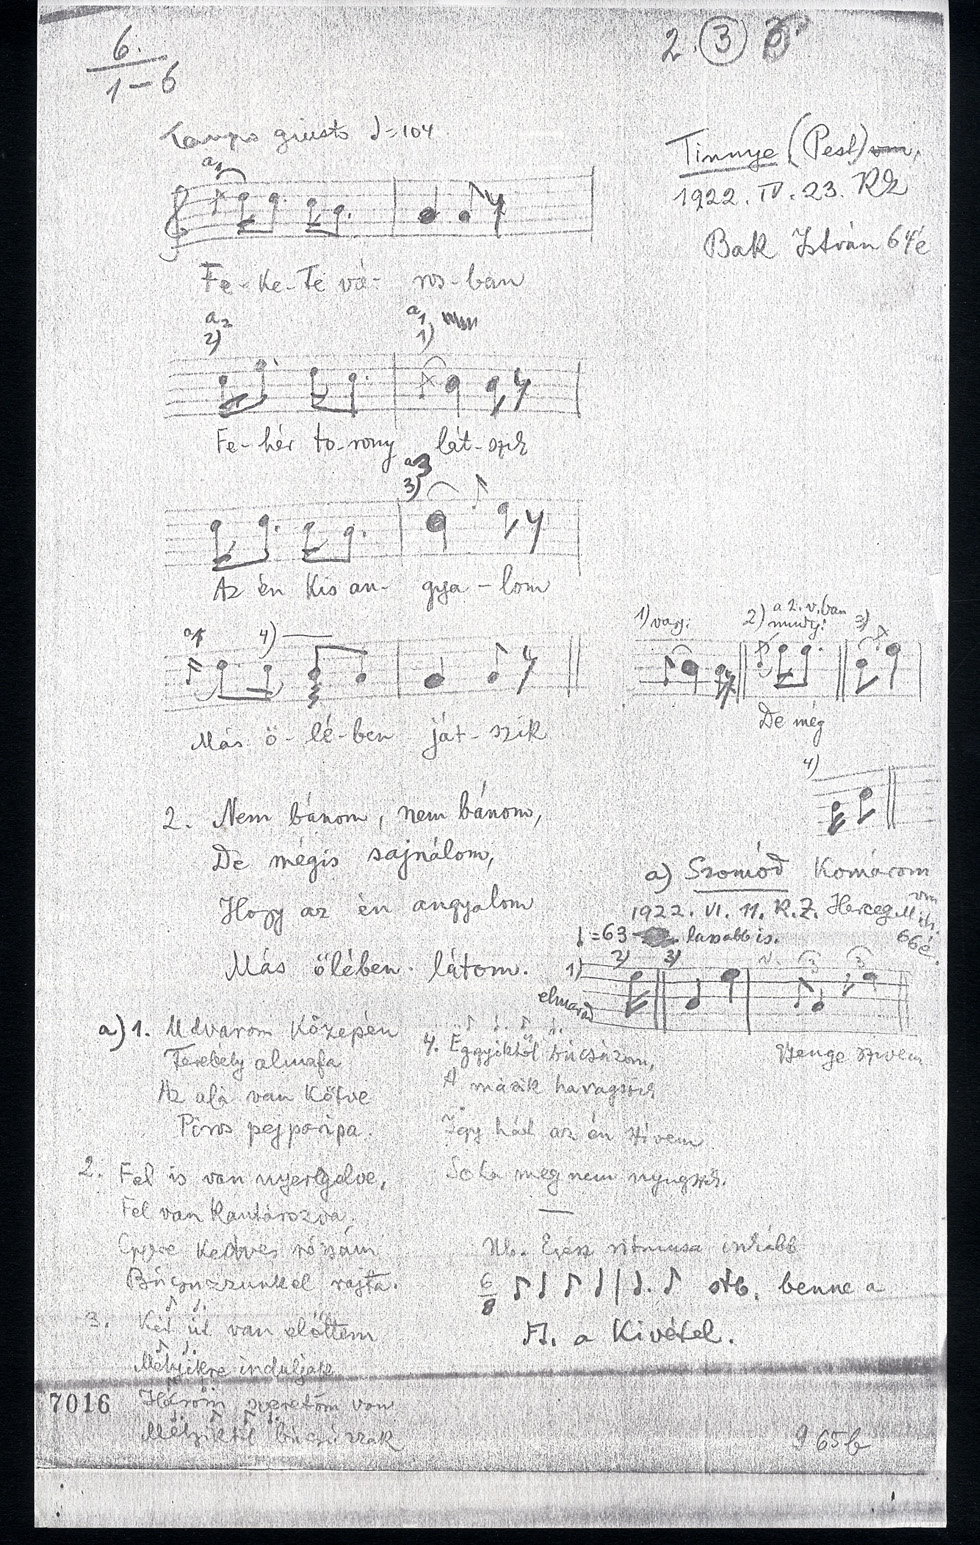 6.
1-6
2. 3
Tempo giusto ♩=104
Tinnye (Pest)
1922. IV. 23. KZ
Bak István 64 é
Fe-ke-te vá-ros-ban
a2
2)
a1
1)
Fe-hér to-rony lát-szik
3)
Az én kis an-gya-lom
4)
Más ö-lé-ben ját-szik
1) vagy:
2) a 2. v.ban mindig:
3)
De még
4)
2. Nem bánom, nem bánom,
De mégis sajnálom,
Hogy az én angyalom
Más ölében látom.
a) Szomód Komárom
1922. VI. 11. K.Z. Herceg
66 é.
♩=63 lassabb is.
1)
elmarad
2)
3)
Gyenge szivem
a) 1. Udvarom közepén
Terebély almafa
Az alá van kötve
Piros pejparipa.
2. Fel is van nyergelve,
Fel van kantározva,
kedves rózsám
Búcsuzzunkel rajta.
3. Két út van előttem
Mélyikre induljak
Három szeretőm van
Mélyiktől búcsúzzak
4. Eggyiktől búcsúzom,
A másik haragszik
Igy hát az én szivem
Soha meg nem nyugszik.
Nb. Egész ritmusa inkább
6/8 ♪♩ ♪♩ | ♩. ♪ stb. benne a
a kivétel.
7016